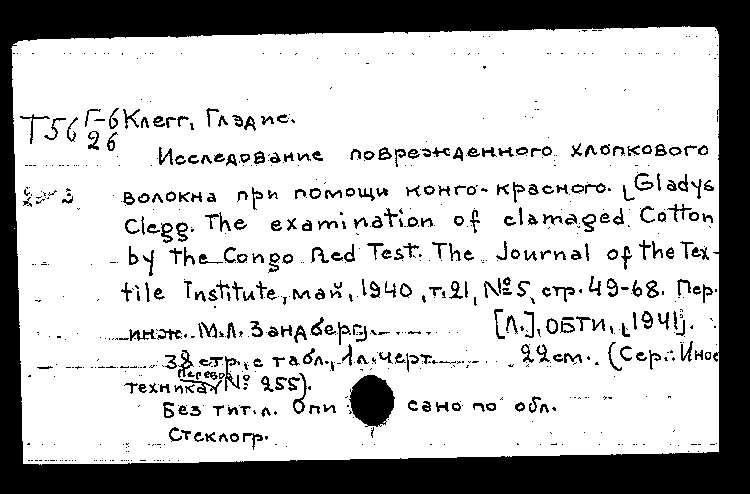 Т56 Г-6 Клегг, Глэдис.
26
Исследование поврежденного хлопкового
волокна при помощи конго-красного. [Gladys
Clegg. The examination of clamaged Cotton
by the Congo Red Test. The Journal of the Tex-
tile Institute, май, 1940, т.21, №5, стр. 49-68. Пер.
инж. М.Л. Зандберг]. [Л.], ОБТИ, [1941].
32 стр., с табл., 1 л. черт. 22 см. (Сер.: Иное
Перевод
техниках № 255).
Без тит. л. Опи сано по обл.
Стеклогр.